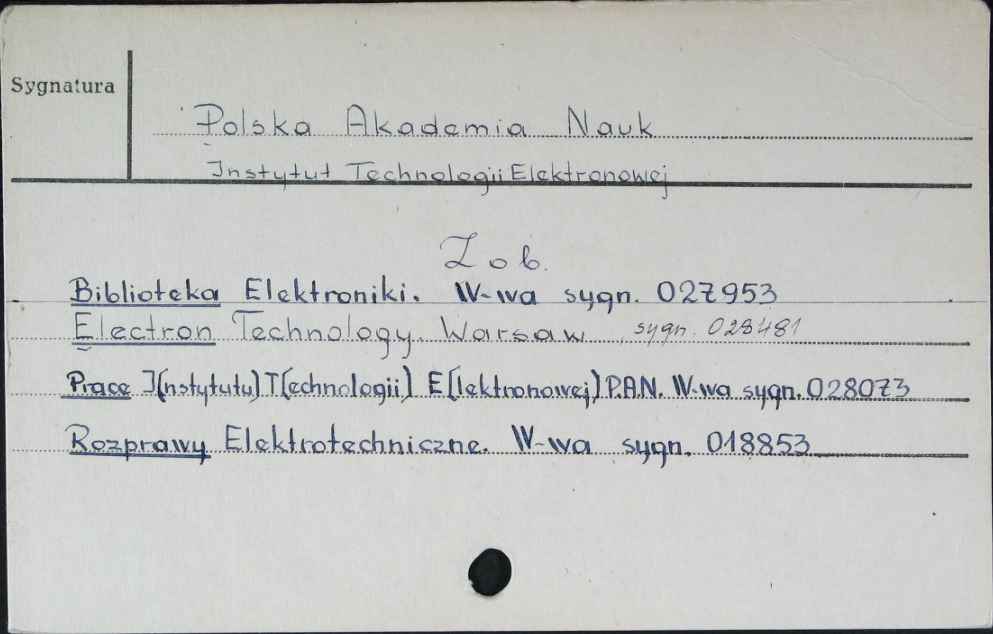 Sygnatura
Polska Akademia Nauk
Instytut Technologii Elektronowej
Zob.
Biblioteka Elektroniki. W-wa sygn. 027953
Electron Technology. Warsaw, sygn. 028481
Prace I[nstytutu] T[echnologii] E[lektronowej] P.A.N. W-wa sygn. 028073
Rozprawy Elektrotechniczne. W-wa sygn. 018853